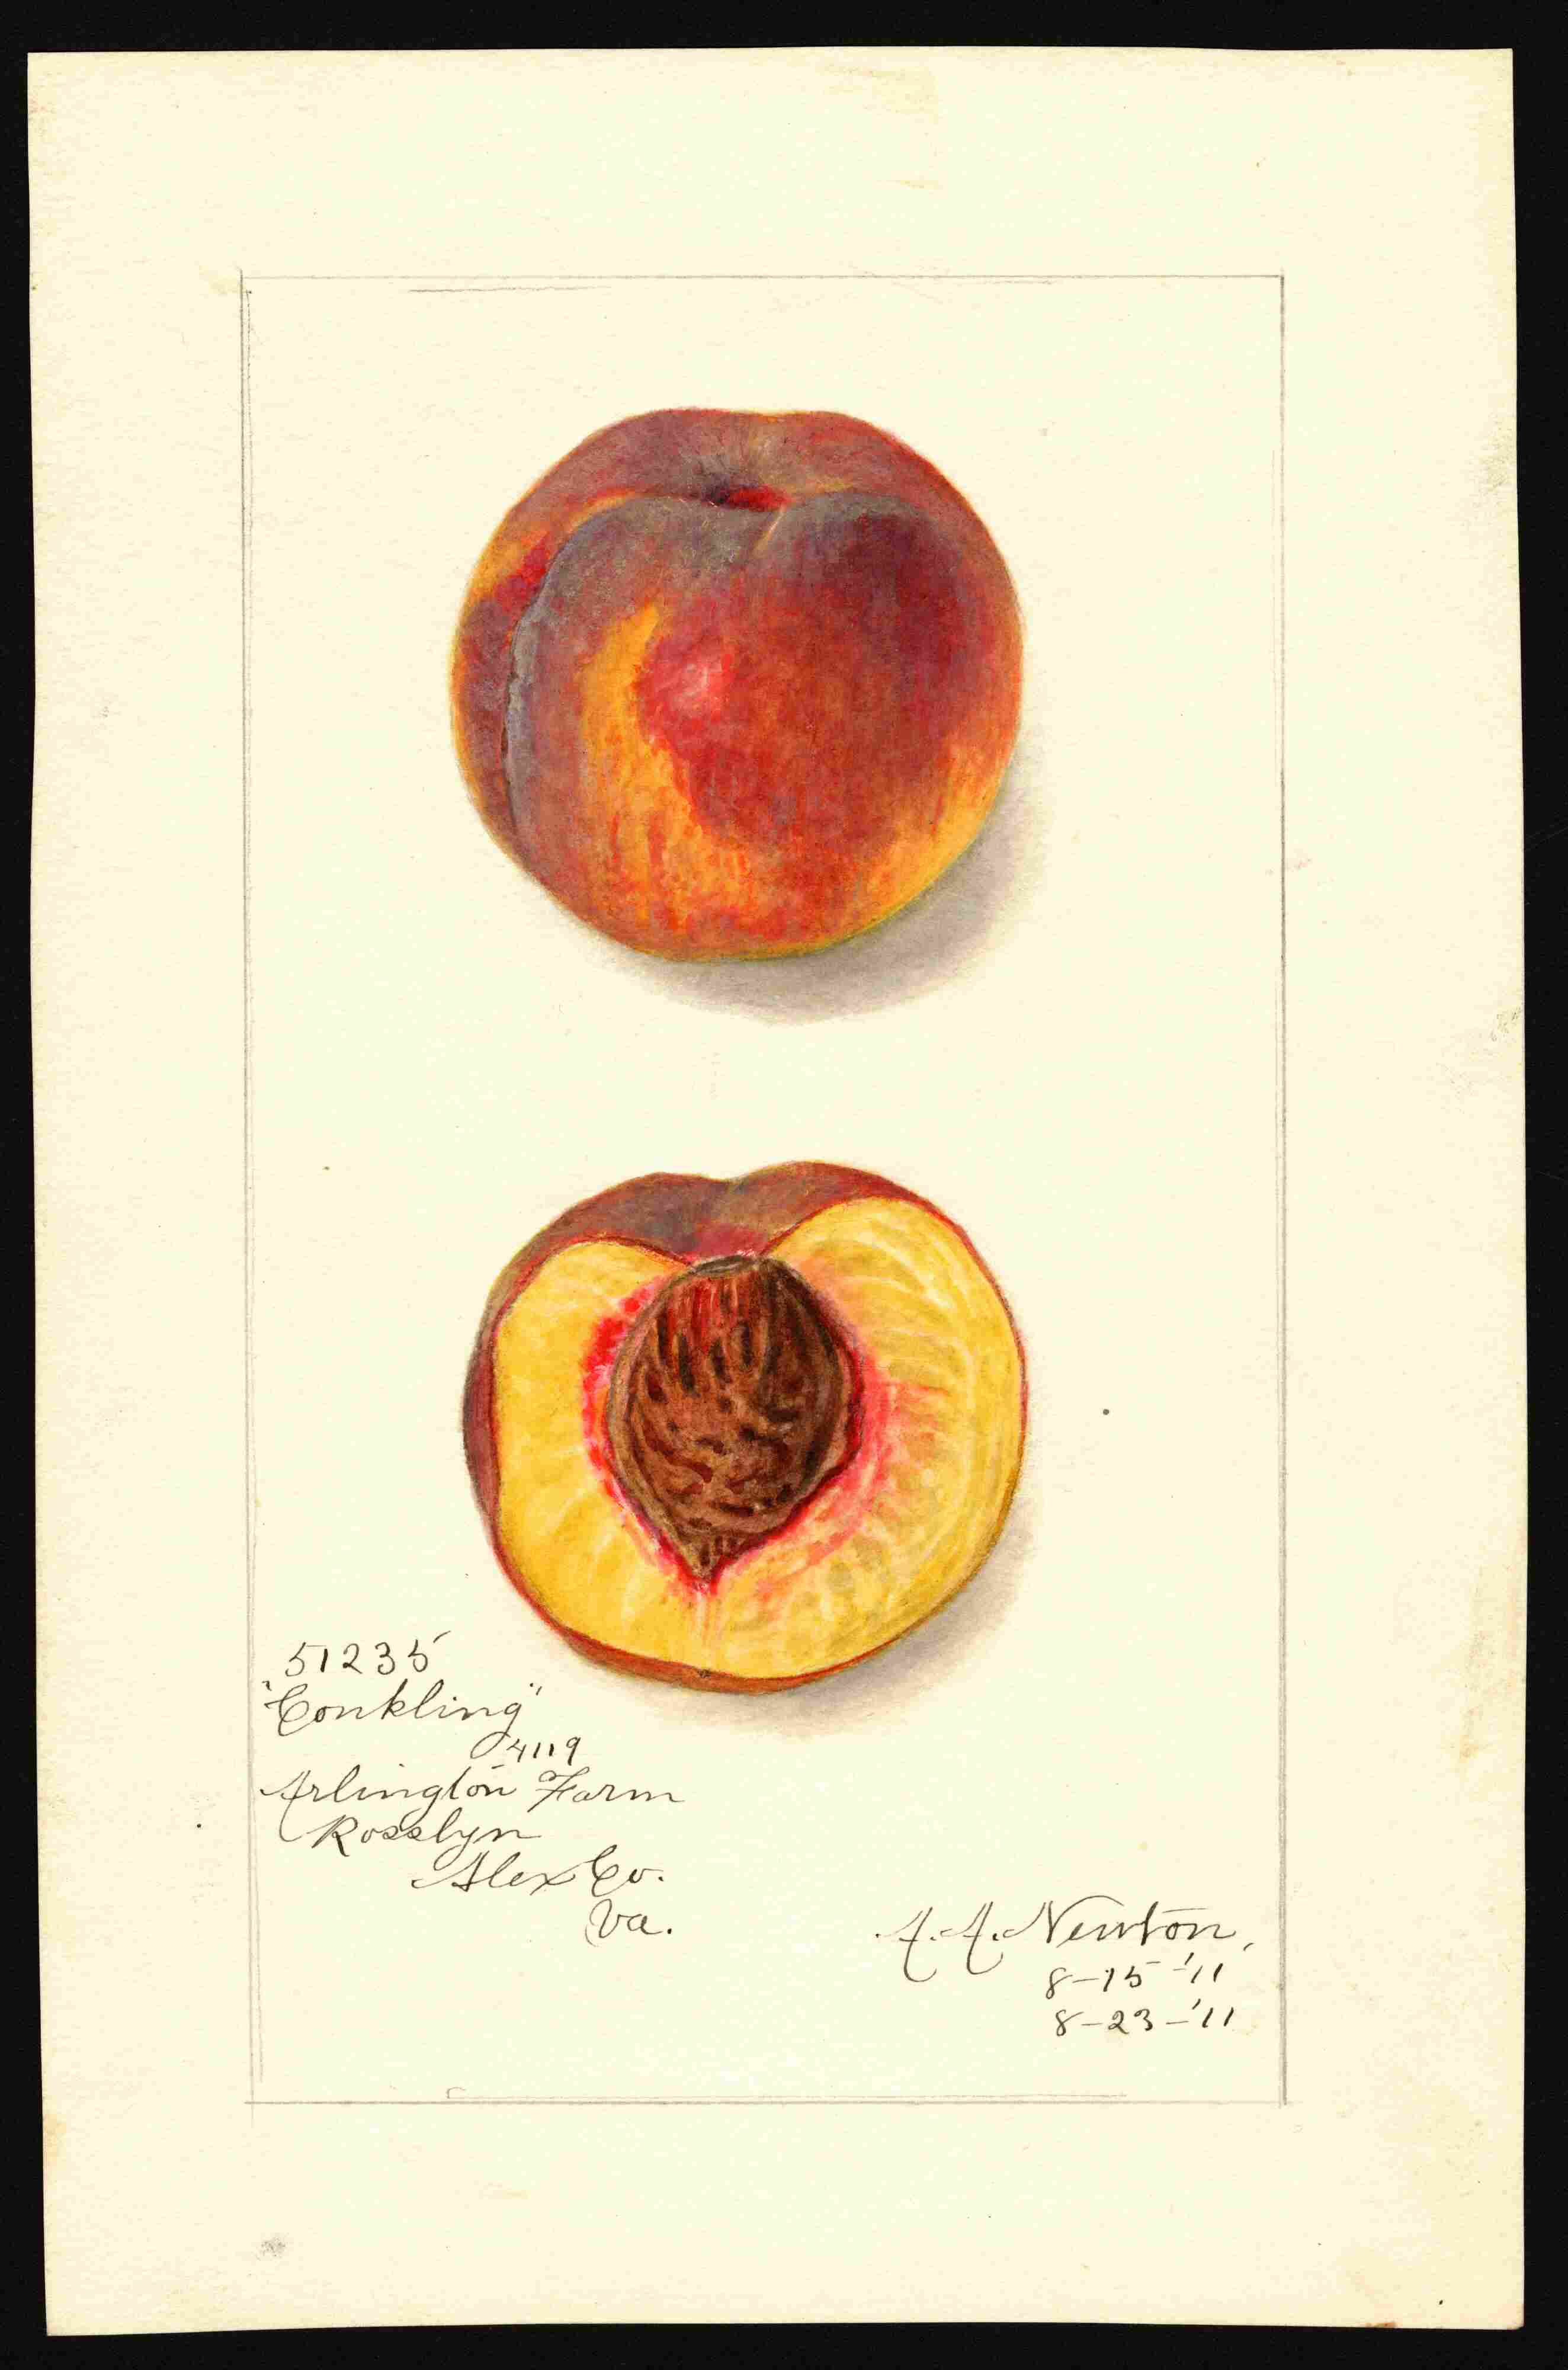 51235
"Conkling"
4119
Arlington Farm
Rosslyn
Alex Co.
Va.
A. A. Newton,
8-15-'11
8-23-'11